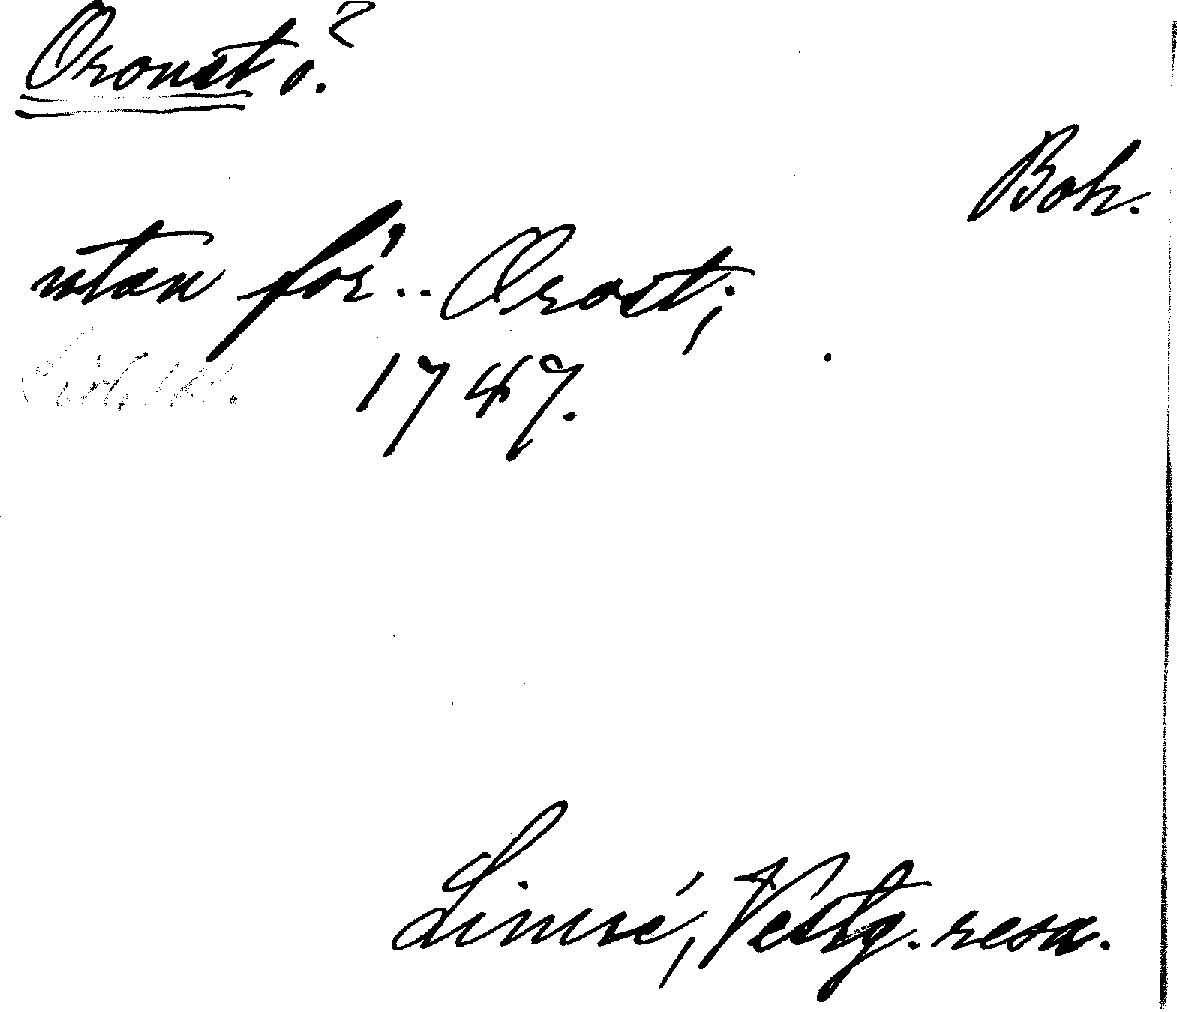 Oronst o.?
Boh.
utan för .. Orost;
1747.
Linné, Vestg. resa.